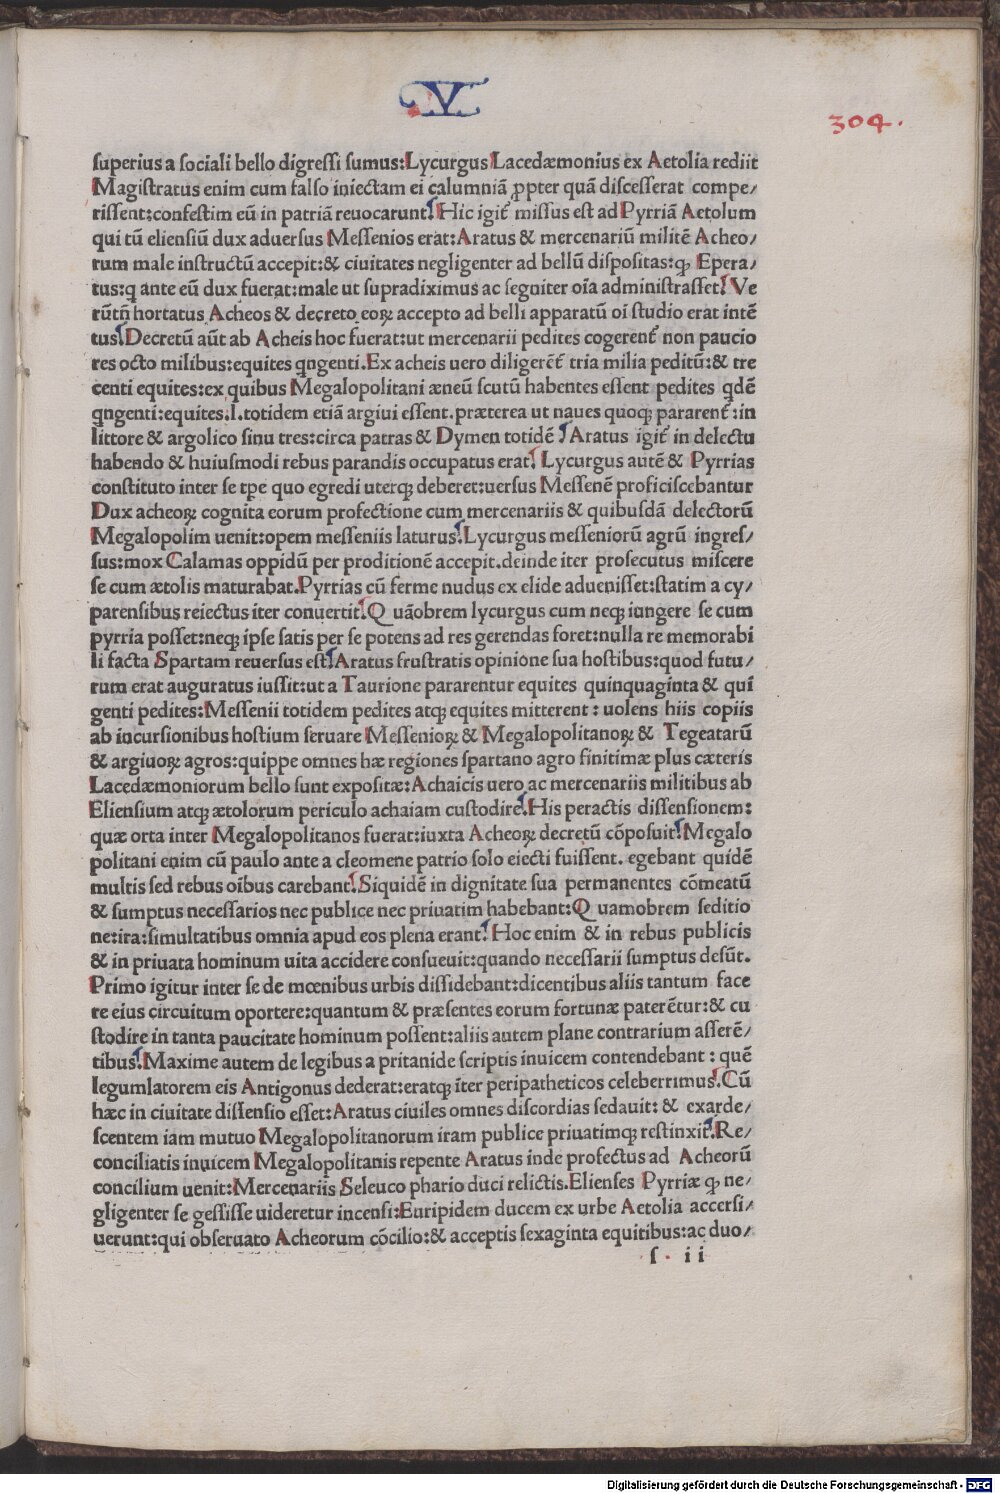 V
304.
superius a sociali bello digressi sumus:Lycurgus Lacedæmonius ex Aetolia rediit
Magistratus enim cum falso iniectam ei calumniã ꝓpter quã discesserat compe/
rissent:confestim eũ in patriã reuocarunt. Hic igit̃ missus est ad Pyrriã Aetolum
qui tũ eliensiũ dux aduersus Messenios erat:Aratus & mercenariũ militẽ Acheo/
rum male instructũ accepit:& ciuitates negligenter ad bellũ dispositas:ꝙ Epera/
tus:q ante eũ dux fuerat:male ut supradiximus ac segniter oĩa administrasset. Ve
rũtñ hortatus Acheos & decreto eoꝝ accepto ad belli apparatũ oĩ studio erat intẽ
tus. Decretũ aũt ab Acheis hoc fuerat:ut mercenarii pedites cogerent̃ non paucio
res octo milibus:equites qngenti.Ex acheis uero diligerẽt̃ tria milia peditũ:& tre
centi equites:ex quibus Megalopolitani æneũ scutũ habentes essent pedites qdẽ
qngenti:equites.l.totidem etiã argiui essent.præterea ut naues quoqꝫ pararent̃:in
littore & argolico sinu tres:circa patras & Dymen totidẽ. Aratus igit̃ in delectu
habendo & huiusmodi rebus parandis occupatus erat. Lycurgus autẽ & Pyrrias
constituto inter se tpe quo egredi uterqꝫ deberet:uersus Messenẽ proficiscebantur
Dux acheoꝝ cognita eorum profectione cum mercenariis & quibusdã delectorũ
Megalopolim uenit:opem messeniis laturus. Lycurgus messeniorũ agrũ ingres/
sus:mox Calamas oppidũ per proditionẽ accepit.deinde iter prosecutus miscere
se cum ætolis maturabat.Pyrrias cũ ferme nudus ex elide aduenisset:statim a cy/
parensibus reiectus iter conuertit. Q uãobrem lycurgus cum neqꝫ iungere se cum
pyrria posset:neqꝫ ipse satis per se potens ad res gerendas foret:nulla re memorabi
li facta Spartam reuersus est. Aratus frustratis opinione sua hostibus:quod futu/
rum erat auguratus iussit:ut a Taurione pararentur equites quinquaginta & quĩ
genti pedites:Messenii totidem pedites atqꝫ equites mitterent : uolens hiis copiis
ab incursionibus hostium seruare Messenioꝝ & Megalopolitanoꝝ & Tegeatarũ
& argiuoꝝ agros:quippe omnes hæ regiones spartano agro finitimæ plus cæteris
Lacedæmoniorum bello sunt expositæ:Achaicis uero ac mercenariis militibus ab
Eliensium atqꝫ ætolorum periculo achaiam custodire. His peractis dissensionem:
quæ orta inter Megalopolitanos fuerat:iuxta Acheoꝝ decretũ cõposuit. Megalo
politani enim cũ paulo ante a cleomene patrio solo eiecti fuissent. egebant quidẽ
multis sed rebus oĩbus carebant. Siquidẽ in dignitate sua permanentes cõmeatũ
& sumptus necessarios nec publice nec priuatim habebant:Q uamobrem seditio
ne:ira:simultatibus omnia apud eos plena erant. Hoc enim & in rebus publicis
& in priuata hominum uita accidere consueuit:quando necessarii sumptus desũt.
Primo igitur inter se de mœnibus urbis dissidebant:dicentibus aliis tantum face
re eius circuitum oportere:quantum & præsentes eorum fortunæ paterẽtur:& cu
stodire in tanta paucitate hominum possent:aliis autem plane contrarium asserẽ/
tibus. Maxime autem de legibus a pritanide scriptis inuicem contendebant : quẽ
legumlatorem eis Antigonus dederat:eratqꝫ ĩter peripatheticos celeberrimus. Cũ
hæc in ciuitate dissensio esset:Aratus ciuiles omnes discordias sedauit: & exarde/
scentem iam mutuo Megalopolitanorum iram publice priuatimqꝫ restinxit. Re/
conciliatis inuicem Megalopolitanis repente Aratus inde profectus ad Acheorũ
concilium uenit:Mercenariis Seleuco phario duci relictis.Elienses Pyrriæ ꝙ ne/
gligenter se gessisse uideretur incensi:Euripidem ducem ex urbe Aetolia accersi/
uerunt:qui obseruato Acheorum cõcilio:& acceptis sexaginta equitibus:ac duo/
s . ii
Digitalisierung gefördert durch die Deutsche Forschungsgemeinschaft - DFG